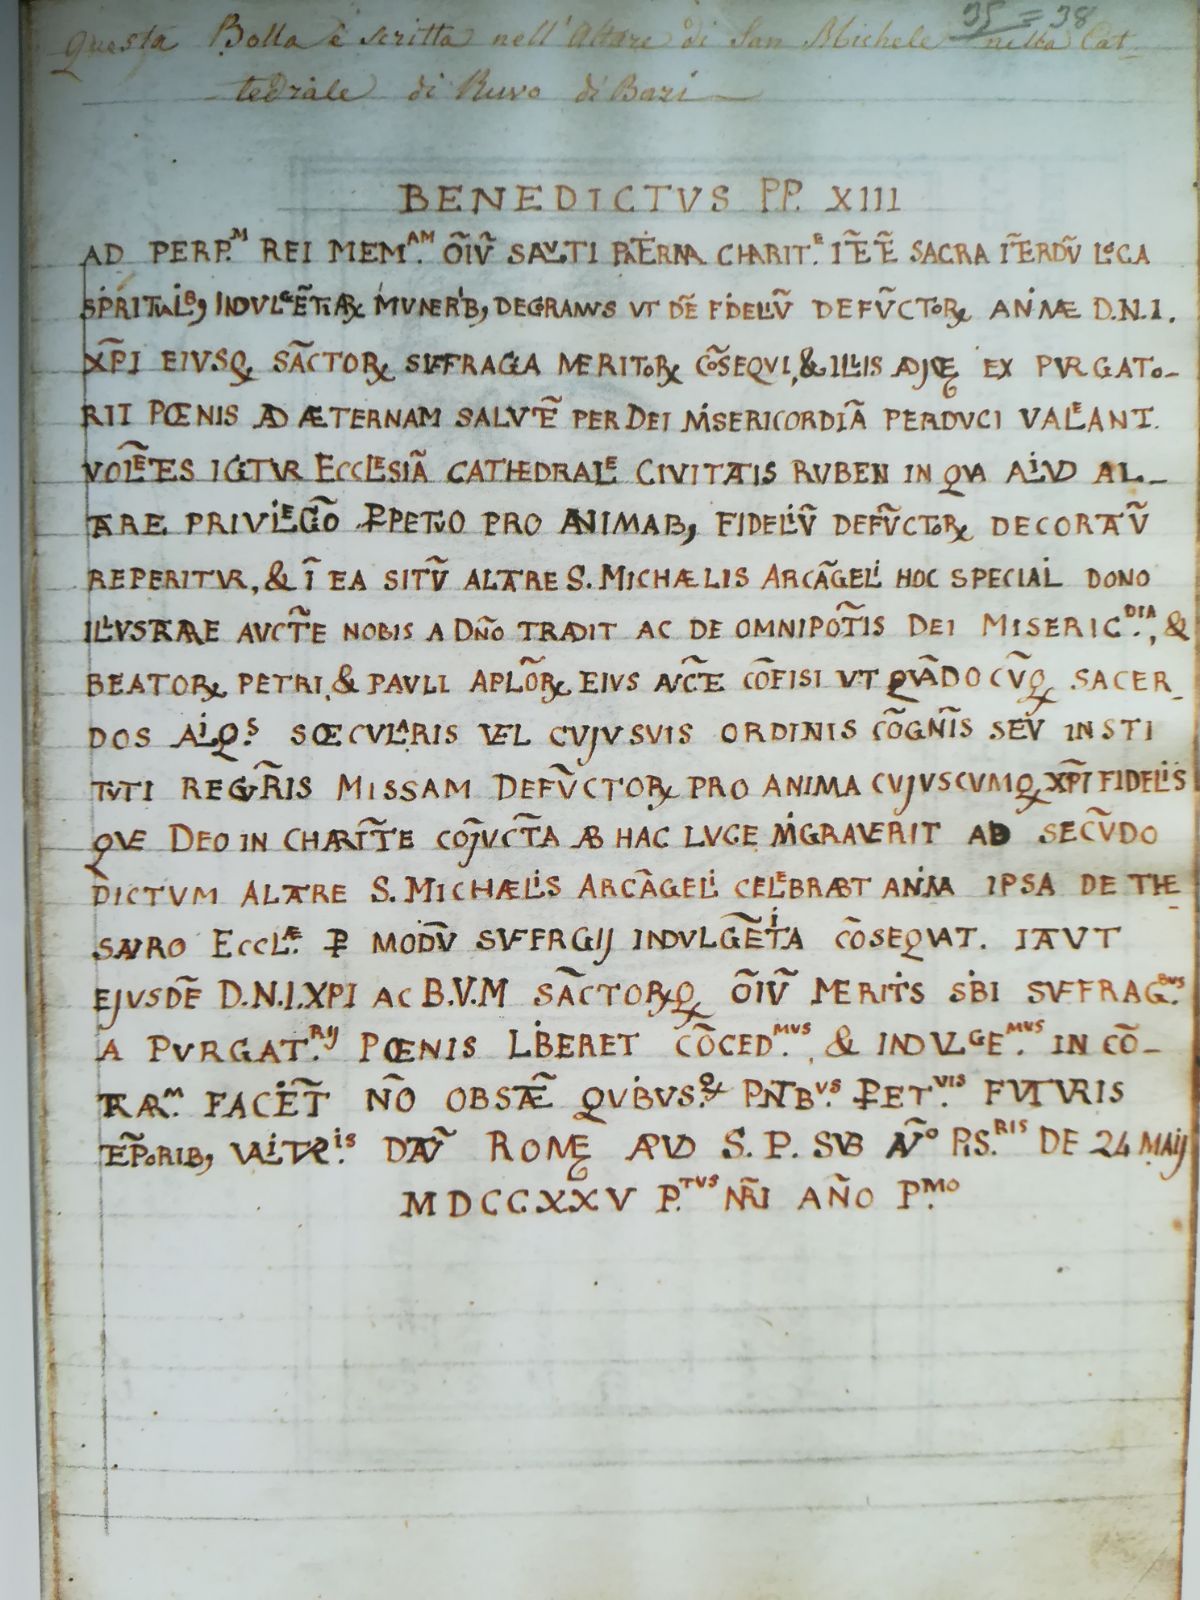 35=38
Questa Bolla è scritta nell'Altare di San Michele nella Cat-
tedrale di Ruvo di Bari
BENEDICTVS PP. XIII
AD PERP.ᴹ REI MEM.ᴬᴹ OĨVṼ SALVTI PATERNA CHARIT.ᴱ ĨTẼTẼ SACRA ĨTERDṼ LOCA
SPIRITUALIB, INDVLGẼTIARꝜ MUNERIB, DECORAMVS UT DẼ FIDELIṼ DEFṼCTORꝜ ANIMÆ D.N.I.
XP̃I EIVSQ SÃCTORꝜ SUFFRAGIA MERITORꝜ CÕSEQVI, & ILLIS ADJUTĘ EX PVRGATO-
RII PŒNIS AD ÆTERNAM SALVTẼ PER DEI MISERICORDIÃ PERDVCI VALEANT.
VOLẼTES IGITVR ECCLESIÃ CATHEDRALE CIVITATIS RVBEN IN QVA ALIVD AL-
TARE PRIVILEGIÕ ꝐPETVO PRO ANIMAB, FIDELIṼ DEFṼCTORꝜ DECORATṼ
REPERITVR, & Ĩ EA SITṼ ALTARE S. MICHÆLIS ARCÃGELI HOC SPECIALI DONO
ILLVSTRARE AVCTẼ NOBIS A DÑO TRADIT AC DE OMNIPOT̃IS DEI MISERIC.ᴰᴵᴬ, &
BEATORꝜ PETRI, & PAVLI APLÕRꝜ EIVS AUC̃TE CÕFISI UT QVÃDOCṼQ SACER-
DOS ALIQ.ˢ SŒCVLARIS VEL CUJUSVIS ORDINIS CÕGÑIS SEV INSTI
TVTI REGVR̃IS MISSAM DEFṼCTORꝜ PRO ANIMA CUJUSCUMQ XP̃I FIDELIS
QUE DEO IN CHARIT̃TE COJ̃VC̃TA AB HAC LUCE MIGRAVERIT AD SECṼDO
DICTVM ALTARE S. MICHÆLIS ARCÃGELI CELEBRABT ANIMA IPSA DE THE-
SAVRO ECCL.Æ Ᵽ MODṼ SVFFRGIJ INDVLGẼTIA CÕSEQVAT. ITÃ VT
EJUSDẼ D.N.I.XPI AC B.V.M SÃCTORꝜQ OĨVṼ MERITIS SIBI SVFFRAG.ᴮᵁˢ
A PVRGAT.ᴿᴵᴶ PŒNIS LIBERET CÕCED.ᴹᵛˢ, & INDVLGE.ᴹᵛˢ IN CÕ-
TRAR.ᴹ FACIẼT NÕ OBSTÆ̃ QVIBUS.Q PÑTIB.ᵛˢ ꝐPET.ᵛᴵˢ FVTVRIS
TẼPORIB, VALITVR.ᴵˢ DAT̃V ROMĘ APUD S. P. SVB AÑ° PIS.ᴿᴵˢ DE 24 MAIJ
MDCCXXV P.ᵀᵛˢ ÑRI AÑO P.ᴹᴼ